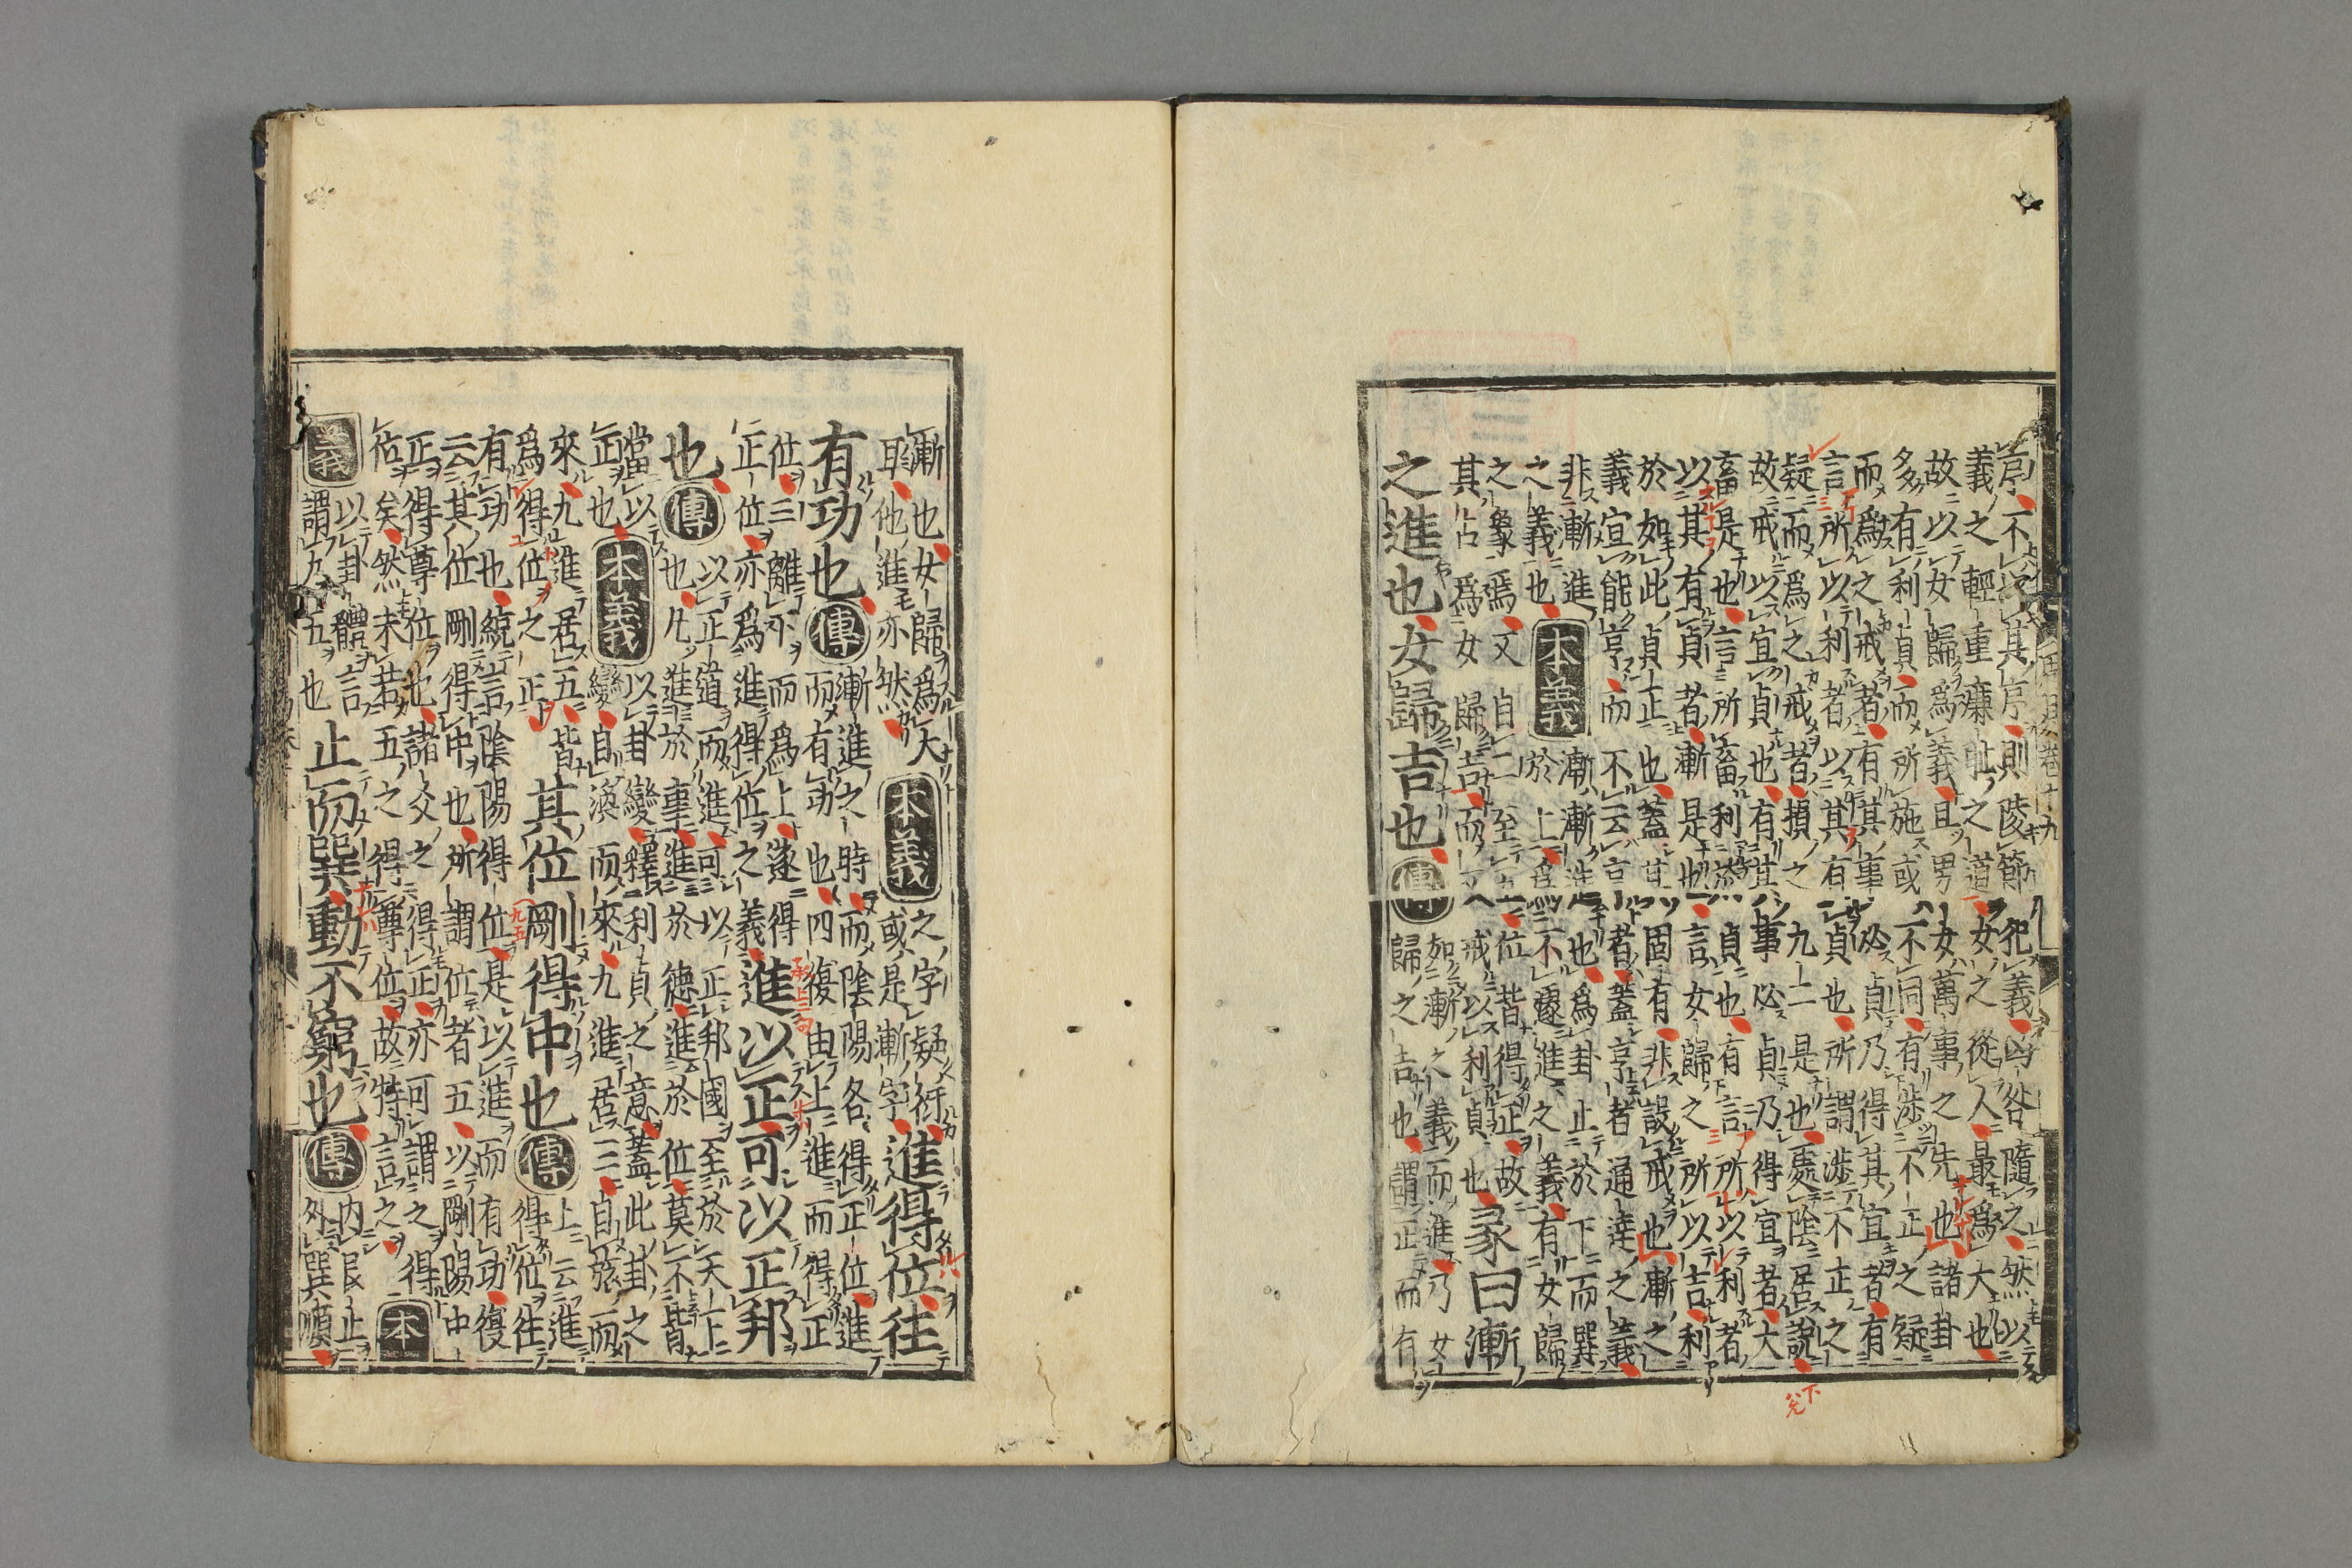 序不以其序則陵節犯義凶咎隨之然以
義之輕重廉恥之道女之從人最爲大也
故以女歸爲義且男女萬事之先也諸卦
多有利貞而所施或不同有渉不正之疑
而爲之戒者有其事必貞乃得其宜者有
言所以利者以其有貞也所謂渉不正之
疑而爲之戒者損之九二是也處陰居説
故戒以宜貞也有其事必貞乃得宜者大
畜是也言所畜利於貞也有言所以利者
以其有貞者漸是也言女歸之所以吉利
於如此貞正也蓋其固有非設戒也漸之
義宜能亨而不云亨者蓋亨者通達之義
非漸進
之義也
本義
漸漸進也爲卦止於下而巽
於上爲不遽進之義有女歸
之象焉又自二至五位皆得正故
其占爲女歸吉而又戒以利貞也
彖曰漸
之進也女歸吉也傳
如漸之義而進乃女
歸之吉也謂正而有
漸也女歸爲大
耳他進亦然
本義
之字疑衍
或是漸字
進得位往
有功也傳
漸進之時而陰陽各得正位進
而有功也四復由上進而得正
位三離下而爲上遂得
正位亦爲進得位之義
進以正可以正邦
也傳
以正道而進可以正邦國至於天下
也凡進於事進於德進於位莫不皆
當以
正也
本義
以卦變釋利貞之意蓋此卦之
變自渙而來九進居三自旅而
來九進居五皆
爲得位之正
其位剛得中也傳
上云進
得位往
有功也統言陰陽得位是以進而有功復
云其位剛得中也所謂位者五以剛陽中
正得尊位也諸爻之得正亦可謂之得
位矣然未若五之得尊位故特言之
本
義
以卦體言
謂九五也
止而巽動不窮也傳
内艮止
外巽順